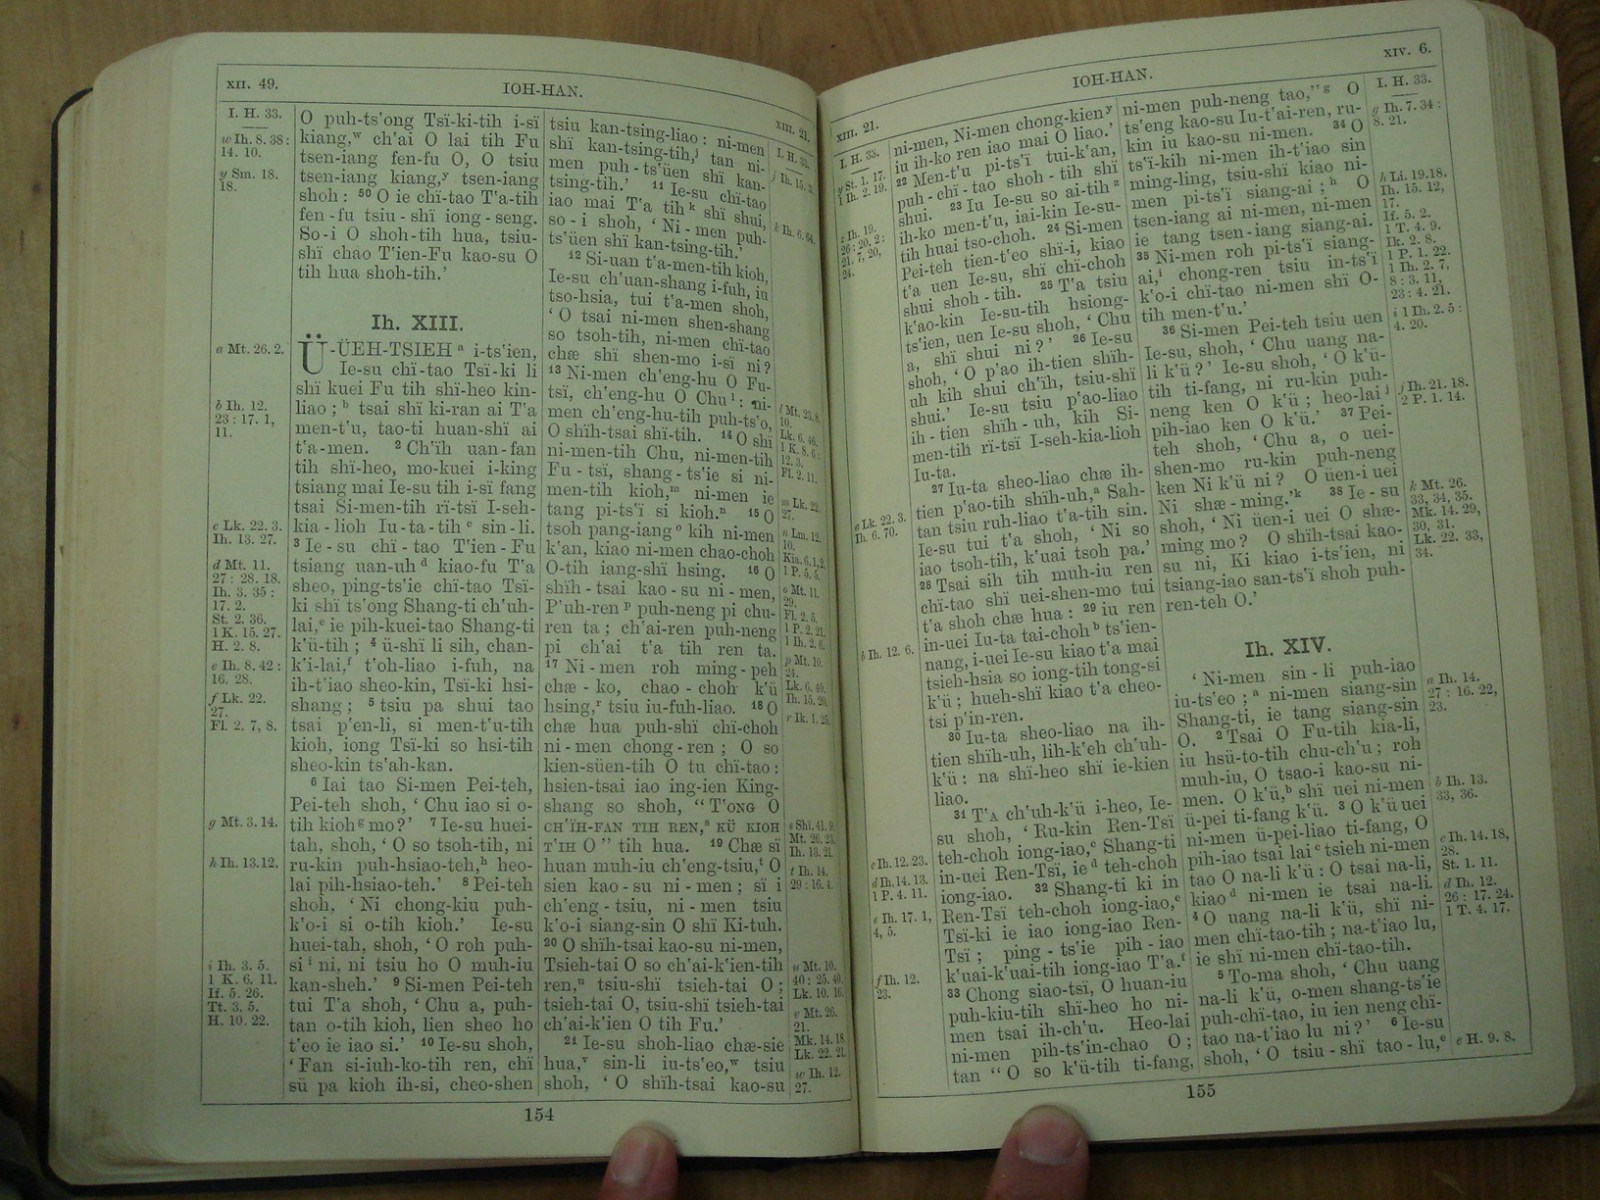 XII. 49.
IOH-HAN.
XIII. 21.
I. H. 33.
w Ih. 8. 38 :
14. 10.
y Sm. 18.
18.
a Mt. 26. 2.
b Ih. 12.
23 : 17. 1,
11.
c Lk. 22. 3.
Ih. 13. 27.
d Mt. 11.
27 : 28. 18.
Ih. 3. 35 :
17. 2.
St. 2. 36.
1 K. 15. 27.
H. 2. 8.
e Ih. 8. 42 :
16. 28.
f Lk. 22.
27.
Fl. 2. 7, 8.
g Mt. 3. 14.
h Ih. 13.12.
i Ih. 3. 5.
1 K. 6. 11.
If. 5. 26.
Tt. 3. 5.
H. 10. 22.
O puh-ts'ong Tsï-ki-tih i-sï
kiang,ʷ ch'ai O lai tih Fu
tsen-iang fen-fu O, O tsiu
tsen-iang kiang,ʸ tsen-iang
shoh : ⁵⁰ O ie chï-tao T'a-tih
fen-fu tsiu-shï iong-seng.
So-i O shoh-tih hua, tsiu-
shï chao T'ien-Fu kao-su O
tih hua shoh-tih.'
Ih. XIII.
Ü-ÜEH-TSIEHᵃ i-ts'ien,
Ie-su chï-tao Tsï-ki li
shï kuei Fu tih shï-heo kin-
liao ;ᵇ tsai shï ki-ran ai T'a
men-t'u, tao-ti huan-shï ai
t'a-men. ² Ch'ïh uan-fan
tih shï-heo, mo-kuei i-king
tsiang mai Ie-su tih i-sï fang
tsai Si-men-tih rï-tsï I-seh-
kia-lioh Iu-ta-tihᶜ sin-li.
³ Ie-su chï-tao T'ien-Fu
tsiang uan-uhᵈ kiao-fu T'a
sheo, ping-ts'ie chï-tao Tsï-
ki shï ts'ong Shang-ti ch'uh-
lai,ᵉ ie pih-kuei-tao Shang-ti
k'ü-tih ; ⁴ ü-shï li sih, chan-
k'i-lai,ᶠ t'oh-liao i-fuh, na
ih-t'iao sheo-kin, Tsï-ki hsi-
shang ; ⁵ tsiu pa shui tao
tsai p'en-li, si men-t'u-tih
kioh, iong Tsï-ki so hsi-tih
sheo-kin ts'ah-kan.
⁶ Iai tao Si-men Pei-teh,
Pei-teh shoh, ‘ Chu iao si o-
tih kiohᵍ mo ?’ ⁷ Ie-su huei-
tah, shoh, ‘ O so tsoh-tih, ni
ru-kin puh-hsiao-teh,ʰ heo-
lai pih-hsiao-teh.’ ⁸ Pei-teh
shoh, ‘ Ni chong-kiu puh-
k'o-i si o-tih kioh.’ Ie-su
huei-tah, shoh, ‘ O roh puh-
siⁱ ni, ni tsiu ho O muh-iu
kan-sheh.’ ⁹ Si-men Pei-teh
tui T'a shoh, ‘ Chu a, puh-
tan o-tih kioh, lien sheo ho
t'eo ie iao si.’ ¹⁰ Ie-su shoh,
‘ Fan si-iuh-ko-tih ren, chï
sü pa kioh ih-si, cheo-shen
tsiu kan-tsing-liao : ni-men
shï kan-tsing-tih,ʲ tan ni-
men puh-ts'üen shï kan-
tsing-tih.’ ¹¹ Ie-su chï-tao
iao mai T'a tihᵏ shï shui,
so-i shoh, ‘ Ni-men puh-
ts'üen shï kan-tsing-tih.’
¹² Si-uan t'a-men-tih kioh,
Ie-su ch'uan-shang i-fuh, iu
tso-hsia, tui t'a-men shoh,
‘ O tsai ni-men shen-shang
so tsoh-tih, ni-men chï-tao
chæ shï shen-mo i-sï ni ?
¹³ Ni-men ch'eng-hu O Fu-
tsï, ch'eng-hu O Chuˡ : ni-
men ch'eng-hu-tih puh-ts'o,
O shïh-tsai shï-tih. ¹⁴ O shï
ni-men-tih Chu, ni-men-tih
Fu-tsï, shang-ts'ie si ni-
men-tih kioh,ᵐ ni-men ie
tang pi-ts'ï si kioh.ⁿ ¹⁵ O
tsoh pang-iangᵒ kih ni-men
k'an, kiao ni-men chao-choh
O-tih iang-shï hsing. ¹⁶ O
shïh-tsai kao-su ni-men,
P'uh-renᵖ puh-neng pi chu-
ren ta ; ch'ai-ren puh-neng
pi ch'ai t'a tih ren ta.
¹⁷ Ni-men roh ming-peh
chæ-ko, chao-choh k'ü
hsing,ʳ tsiu iu-fuh-liao. ¹⁸ O
chæ hua puh-shï chï-choh
ni-men chong-ren ; O so
kien-süen-tih O tu chï-tao :
hsien-tsai iao ing-ien King-
shang so shoh, “ T'ONG O
CH'ÏH-FAN TIH REN,ˢ KÜ KIOH
T'IH O ” tih hua. ¹⁹ Chæ sï
huan muh-iu ch'eng-tsiu,ᵗ O
sien kao-su ni-men ; sï i
ch'eng-tsiu, ni-men tsiu
k'o-i siang-sin O shï Ki-tuh.
²⁰ O shïh-tsai kao-su ni-men,
Tsieh-tai O so ch'ai-k'ien-tih
ren,ᵘ tsiu-shï tsieh-tai O ;
tsieh-tai O, tsiu-shï tsieh-tai
ch'ai-k'ien O tih Fu.’
²¹ Ie-su shoh-liao chæ-sie
hua,ᵛ sin-li iu-ts'eo,ʷ tsiu
shoh, ‘ O shïh-tsai kao-su
I. H. 33.
k Ih. 6. 64.
l Mt. 23. 8,
10.
Lk. 6. 46.
1 K. 8. 6 :
12. 3.
Fl. 2. 11.
m Lk. 22.
27.
n Lm. 12.
10.
Kia. 6. 1, 2.
1 P. 5. 5.
o Mt. 11.
29.
Fl. 2. 5.
1 P. 2. 21.
1 Ih. 2. 6.
p Mt. 10.
24.
Lk. 6. 40.
Ih. 15. 20.
r Ik. 1. 25.
s Shï. 41. 9.
Mt. 26. 23.
Ih. 13. 21.
t Ih. 14.
29 : 16. 4.
u Mt. 10.
40 : 25. 40.
Lk. 10. 16.
v Mt. 26.
21.
Mk. 14. 18.
Lk. 22. 21.
w Ih. 12.
27.
154
XIII. 21.
IOH-HAN.
XIV. 6.
I. H. 33.
y St. 1. 17.
1 Ih. 2. 19.
z Ih. 19.
26 : 20. 2 :
21. 7, 20,
24.
a Lk. 22. 3.
Ih. 6. 70.
b Ih. 12. 6.
c Ih. 12. 23.
d Ih. 14. 13.
1 P. 4. 11.
e Ih. 17. 1,
4, 5.
f Ih. 12.
23.
ni-men, Ni-men chong-kienʸ
iu ih-ko ren iao mai O liao.’
²² Men-t'u pi-ts'ï tui-k'an,
puh-chï-tao shoh-tih shï
shui. ²³ Iu Ie-su so ai-tihᶻ
ih-ko men-t'u, iai-kin Ie-su-
tih huai tso-choh. ²⁴ Si-men
Pei-teh tien-t'eo shï-i, kiao
t'a uen Ie-su, shï chï-choh
shui shoh-tih. ²⁵ T'a tsiu
k'ao-kin Ie-su-tih hsiong-
ts'ien, uen Ie-su shoh, ‘ Chu
a, shï shui ni ?’ ²⁶ Ie-su
shoh, ‘ O p'ao ih-tien shïh-
uh kih shui ch'ïh, tsiu-shï
shui.’ Ie-su tsiu p'ao-liao
ih-tien shïh-uh, kih Si-
men-tih rï-tsï I-seh-kia-lioh
Iu-ta.
²⁷ Iu-ta sheo-liao chæ ih-
tien p'ao-tih shïh-uh,ᵃ Sah-
tan tsiu ruh-liao t'a-tih sin.
Ie-su tui t'a shoh, ‘ Ni so
iao tsoh-tih, k'uai tsoh pa.’
²⁸ Tsai sih tih muh-iu ren
chï-tao shï uei-shen-mo tui
t'a shoh chæ hua : ²⁹ iu ren
in-uei Iu-ta tai-chohᵇ ts'ien-
nang, i-uei Ie-su kiao t'a mai
tsieh-hsia so iong-tih tong-si
k'ü ; hueh-shï kiao t'a cheo-
tsi p'in-ren.
³⁰ Iu-ta sheo-liao na ih-
tien shïh-uh, lih-k'eh ch'uh-
k'ü : na shï-heo shï ie-kien
liao.
³¹ T'A ch'uh-k'ü i-heo, Ie-
su shoh, ‘ Ru-kin Ren-Tsï
teh-choh iong-iao,ᶜ Shang-ti
in-uei Ren-Tsï, ieᵈ teh-choh
iong-iao. ³² Shang-ti ki in
Ren-Tsï teh-choh iong-iao,ᵉ
Tsï-ki ie iao iong-iao Ren-
Tsï ; ping-ts'ie pih-iao
k'uai-k'uai-tih iong-iao T'a.ᶠ
³³ Chong siao-tsï, O huan-iu
puh-kiu-tih shï-heo ho ni-
men tsai ih-ch'u. Heo-lai
ni-men pih-ts'in-chao O ;
tan “ O so k'ü-tih ti-fang,
ni-men puh-neng tao,”ᵍ O
ts'eng kao-su Iu-t'ai-ren, ru-
kin iu kao-su ni-men. ³⁴ O
ts'ï-kih ni-men ih-t'iao sin
ming-ling, tsiu-shï kiao ni-
men pi-ts'ï siang-ai ;ʰ O
tsen-iang ai ni-men, ni-men
ie tang tsen-iang siang-ai.
³⁵ Ni-men roh pi-ts'ï siang-
ai,ⁱ chong-ren tsiu in-ts'ï
k'o-i chï-tao ni-men shï O-
tih men-t'u.’
³⁶ Si-men Pei-teh tsiu uen
Ie-su, shoh, ‘ Chu uang na-
li k'ü ?’ Ie-su shoh, ‘ O k'ü-
tih ti-fang, ni ru-kin puh-
neng ken O k'ü ; heo-laiʲ
pih-iao ken O k'ü.’ ³⁷ Pei-
teh shoh, ‘ Chu a, o uei-
shen-mo ru-kin puh-neng
ken Ni k'ü ni ? O üen-i uei
Ni shæ-ming.’ᵏ ³⁸ Ie-su
shoh, ‘ Ni üen-i uei O shæ-
ming mo ? O shïh-tsai kao-
su ni, Ki kiao i-ts'ien, ni
tsiang-iao san-ts'ï shoh puh-
ren-teh O.’
Ih. XIV.
‘ Ni-men sin-li puh-iao
iu-ts'eo ;ᵃ ni-men siang-sin
Shang-ti, ie tang siang-sin
O. ² Tsai O Fu-tih kia-li,
iu hsü-to-tih chu-ch'u ; roh
muh-iu, O tsao-i kao-su ni-
men. O k'ü,ᵇ shï uei ni-men
ü-pei ti-fang k'ü. ³ O k'ü uei
ni-men ü-pei-liao ti-fang, O
pih-iao tsai laiᶜ tsieh ni-men
tao O na-li k'ü : O tsai na-li,
kiaoᵈ ni-men ie tsai na-li.
⁴ O uang na-li k'ü, shï ni-
men chï-tao-tih ; na-t'iao lu,
ie shï ni-men chï-tao-tih.
⁵ To-ma shoh, ‘ Chu uang
na-li k'ü, o-men shang-ts'ie
puh-chï-tao, iu ien neng chï-
tao na-t'iao lu ni ?’ ⁶ Ie-su
shoh, ‘ O tsiu-shï tao-lu,ᵉ
I. H. 33.
g Ih. 7. 34 :
8. 21.
h Li. 19.18.
Ih. 15. 12,
17.
If. 5. 2.
1 T. 4. 9.
Ik. 2. 8.
1 P. 1. 22.
1 Ih. 2. 7,
8 : 3. 11,
23 : 4. 21.
i 1 Ih. 2. 5 :
4. 20.
j Ih. 21. 18.
2 P. 1. 14.
k Mt. 26.
33, 34, 35.
Mk. 14. 29,
30, 31.
Lk. 22. 33,
34.
a Ih. 14.
27 : 16. 22,
23.
b Ih. 13.
33, 36.
c Ih. 14. 18,
28.
St. 1. 11.
d Ih. 12.
26 : 17. 24.
1 T. 4. 17.
e H. 9. 8.
155